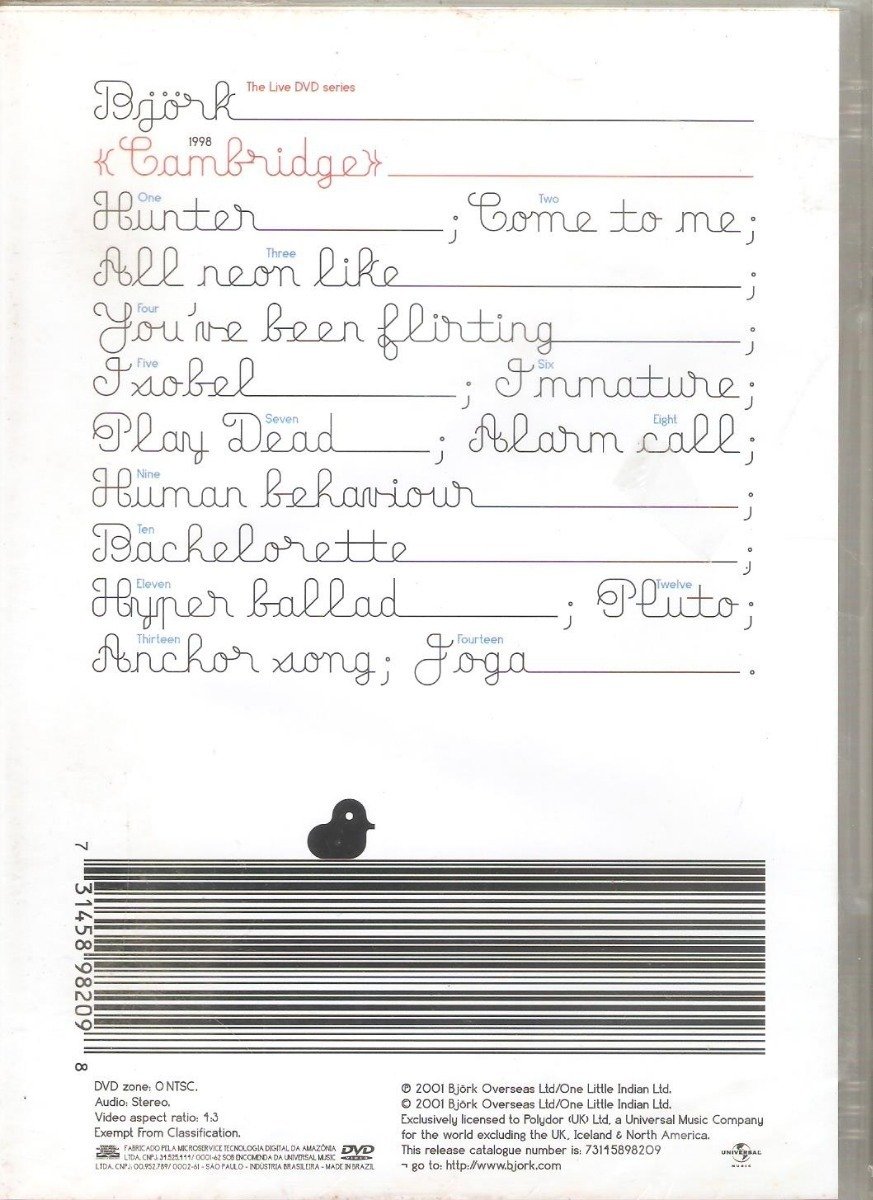 Björk The Live DVD series
1998
«Cambridge»
One Two
Hunter ; Come to me;
Three
All neon like ;
Four
You've been flirting ;
Five Six
Isobel ; Immature;
Seven Eight
Play Dead ; Alarm call;
Nine
Human behaviour ;
Ten
Bachelorette ;
Eleven Twelve
Hyper ballad ; Pluto;
Thirteen Fourteen
Anchor song; Joga .
7 31458 98209 8
DVD zone: 0 NTSC.
Audio: Stereo.
Video aspect ratio: 4:3
Exempt From Classification.
FABRICADO PELA MICROSERVICE TECNOLOGIA DIGITAL DA AMAZÔNIA
LTDA. CNPJ 34.525.444/ 0001-62 SOB ENCOMENDA DA UNIVERSAL MUSIC
LTDA. CNPJ 00.952.789/ 0002-61 - SAO PAULO - INDÚSTRIA BRASILEIRA - MADE IN BRAZIL
DVD
VIDEO
℗ 2001 Björk Overseas Ltd/One Little Indian Ltd.
© 2001 Björk Overseas Ltd/One Little Indian Ltd.
Exclusively licensed to Polydor (UK) Ltd, a Universal Music Company
for the world excluding the UK, Iceland & North America.
This release catalogue number is: 73145898209
¬ go to: http://www.bjork.com
UNIVERSAL
MUSIC